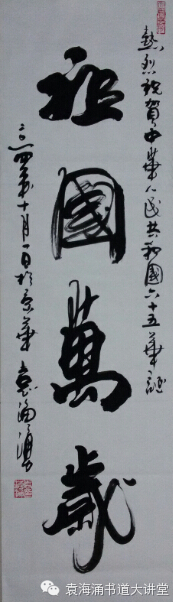 熱烈祝賀中華人民共和國六十五華誕
祖國萬歲
二〇一四年十月一日於京華 袁海涌
袁海涌书道大讲堂